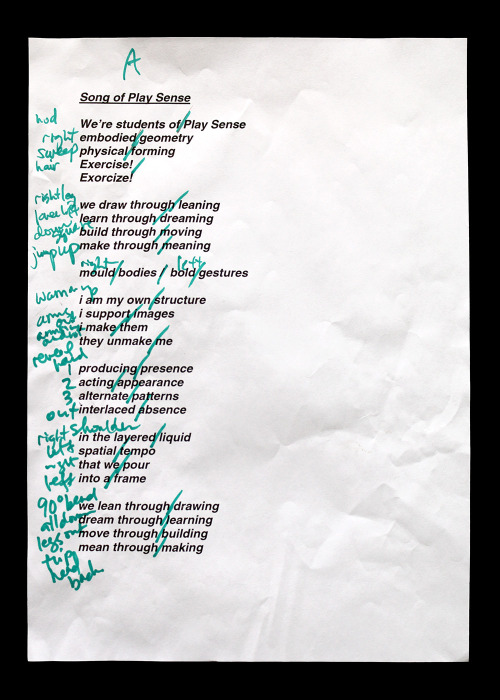 A
Song of Play Sense
nod
We're students of / Play Sense
right embodied / geometry
sweep physical / forming
hair Exercise! /
Exorcize!
right leg we draw through / leaning
learn through / dreaming
down build through / moving
jump up make through / meaning
right left
mould / bodies / bold / gestures
warm up i am my own / structure
arms i support / images
i make / them
reveal they unmake / me
1 producing / presence
2 acting / appearance
3 alternate / patterns
out interlaced / absence
right shoulder
in the layered / liquid
left spatial / tempo
right that we / pour
left into a / frame
90° bend we lean through / drawing
all down dream through / learning
legs out move through / building
mean through / making
head
back